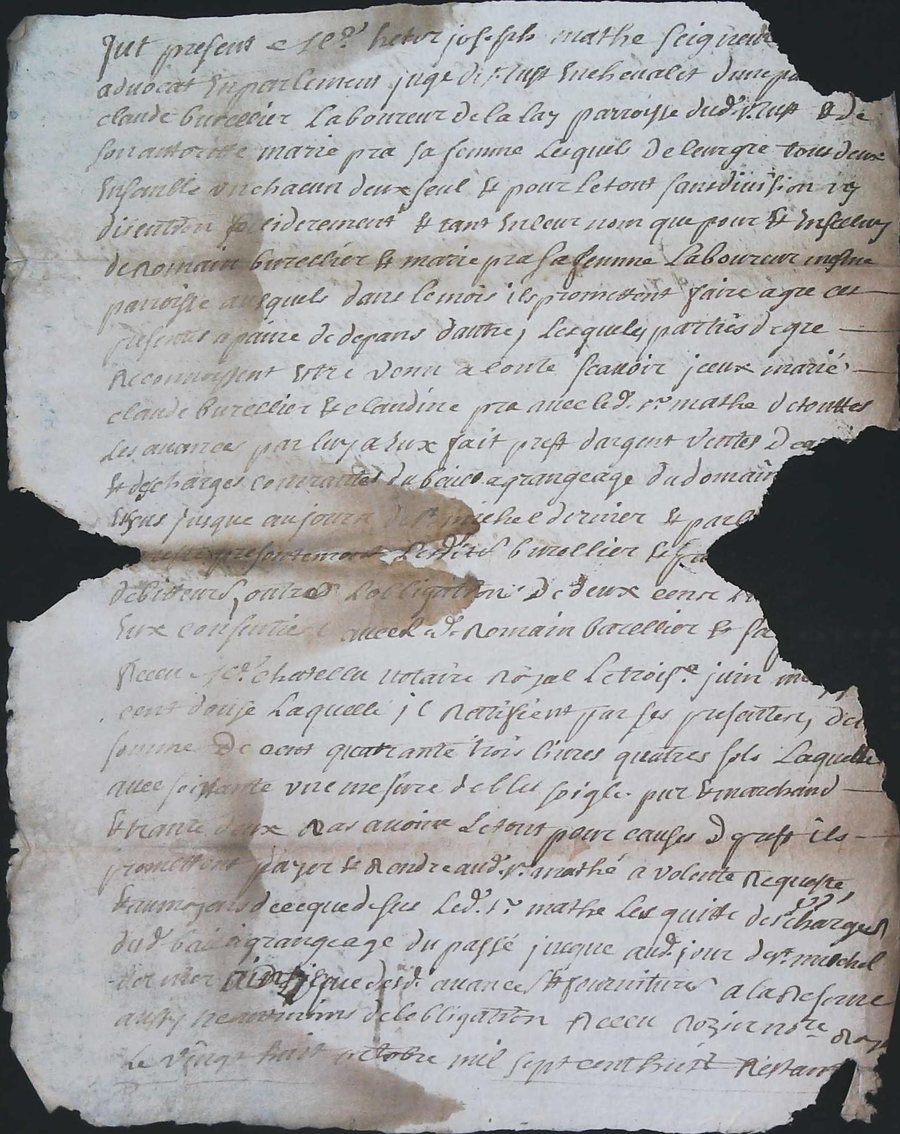 fut present Me hetor joseph mathe Seigneur
advocat En parlement juge de st just En chevalet dune pa
claude burellier Laboureur de la lay parroisse dud. st just & de
son autorité marie pra sa femme Lesquels de leur gre tous deux
Ensemble un chacun deux seul Et pour Le tout sans division ny
disention soliderement Et tant En leur nom que pour Et
de Romain burellier Et marie pra sa femme Laboureur mesme
parroisse ausquels dans le mois ils promettent faire agreer ces
presentes a paine de depans dautre, Lesquels parties de gre
Reconnoissent Estre venu a Conte scavoir jceux mariés
claude burellier Et claudine pra avec led. sr mathe de touttes
Les avances par luy a Eux fait prest dargent ventes De
Et descharges contractés du bail a grangeage du domain
jusque au jour de st michel dernier Et par
presentement Lesdits burellier Et
debitteurs, outre Lobligation De deux cent
Eux consentie avec led. Romain burellier Et sa
Receu Me chatelu notaire Royal Le troise juin
cent douze Laquelle jls Ratifient par ses presentes, de la
somme De cent quarante trois livres quatres sols Laquelle
avec soixante une mesure de bled soigle pur Et marchand
Et trante deux Ras avoine Le tout pour causes De prest ils
promettent payer Et Rendre aud. sr mathé a volonté Requeste,
Et aumoyens de ce que dessus Led. sr mathe Les quitte des charges
dud. bail a grangeage du passé jusque aud. jour de st michel
dernier ainsy que desd. avances Et fournitures a la Reserve
neanmoins de lobligation Receu Rozier notre Royal
Le vingt huit octobre mil sept cent huit Restant